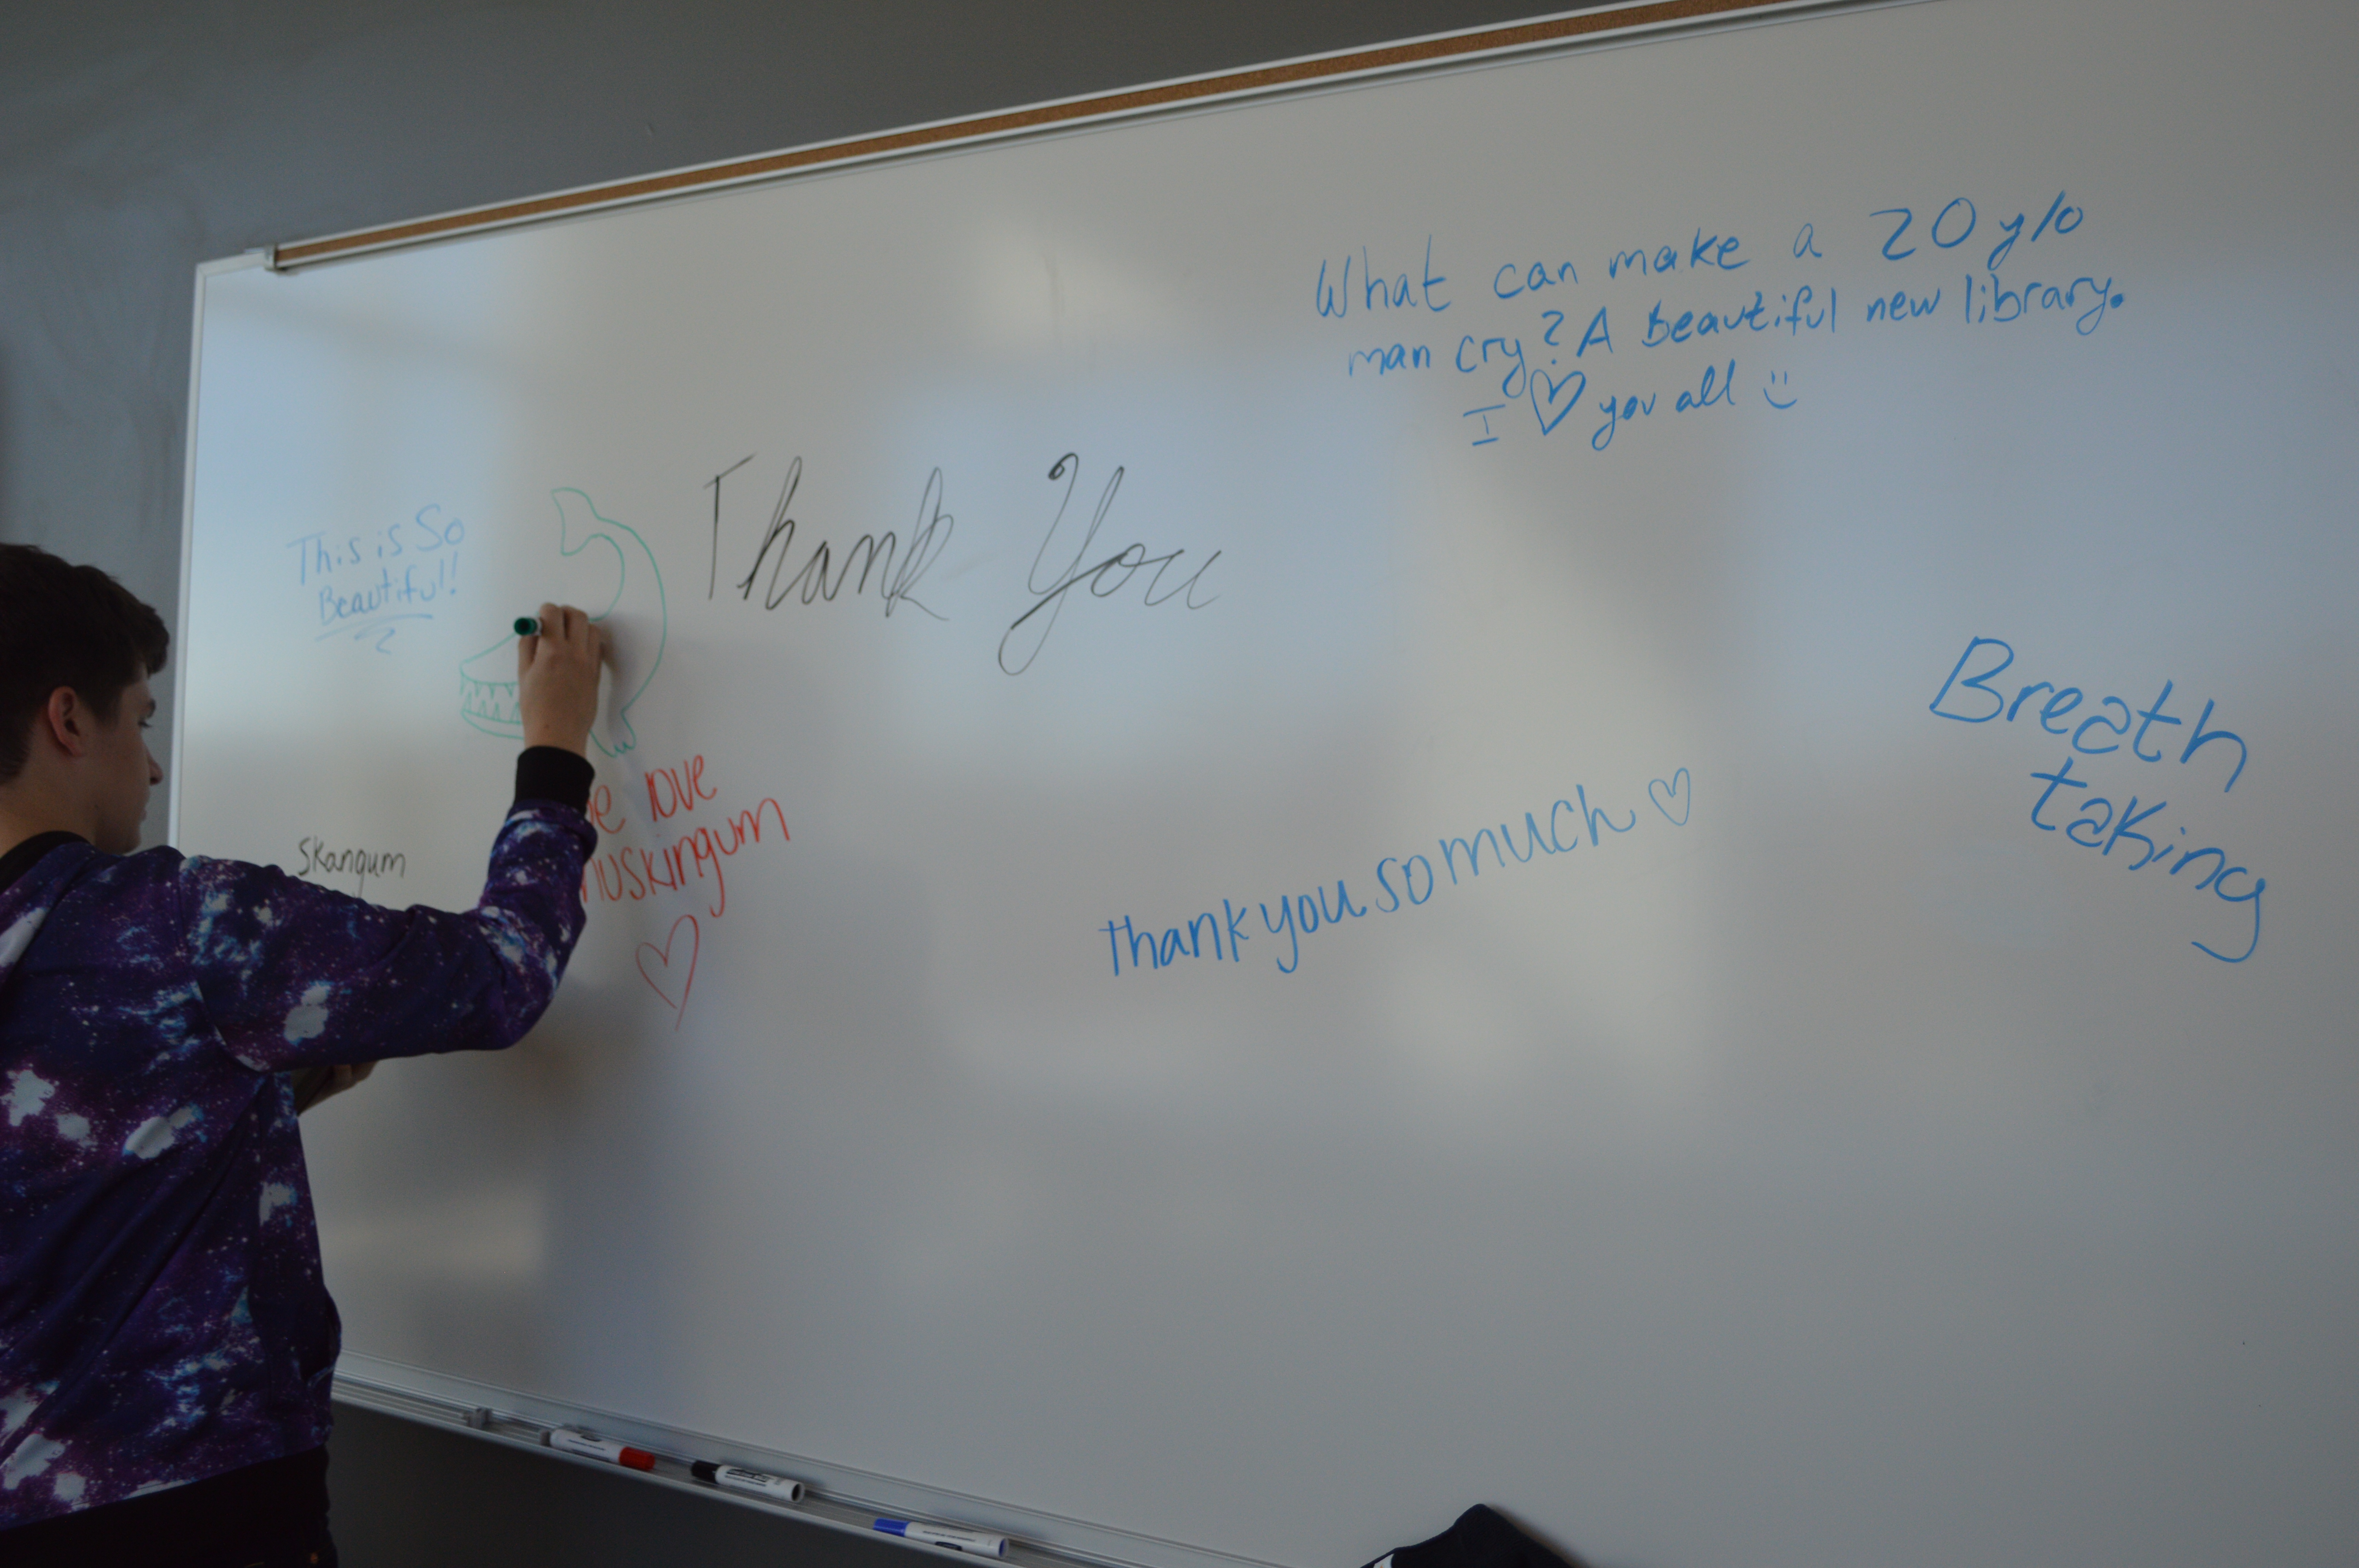 What can make a 20 y/o
man cry? A Beautiful new library.
I ♡ you all :)
Thank You
This is So
Beautiful!
Breath
taking
love
muskingum
♡
Skangum
thank you so much ♡